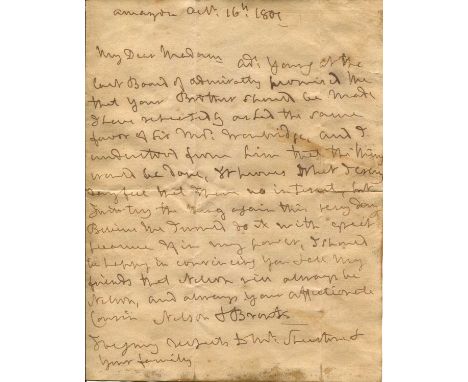 Amazon Octr. 16th 1801
My Dear Madam Adl Young at the
last Board of Admiralty promised me
that your Brother should be made
I have repeatedly asked the same
favor of Sir Ths. Troubridge, and I
understood from him that the thing
would be done, it proves what I every
day feel that I have no interest but
I will try the thing again this very day
Believe me I would do it with great
pleasure if in my power, I should
be happy in convincing you & all my
friends that Nelson will always be
Nelson, and always your affectionate
Cousin Nelson & Bronte
my respects to Mr.
your family